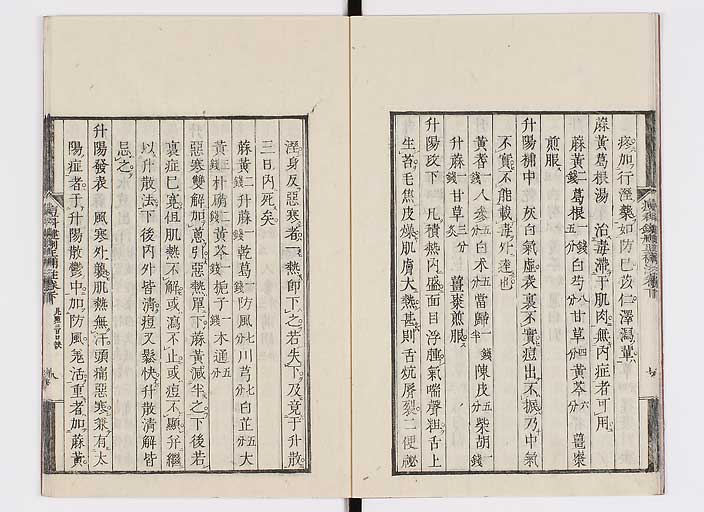 疹加行溼藥如防已苡仁澤瀉輩
蔴黃葛根湯　治毒滯于肌肉無內症者可用
蔴黃二錢葛根一錢五分白芍八分甘草四分黃芩六分　葱棗
煎服
升陽補中　灰白氣虛表裏不實痘出不振乃中氣
不實不能載毒外達也
黃耆一錢人參五分白朮五分當歸一錢陳皮五分柴胡一錢半
升蔴一錢甘草三分炙　薑棗煎服
升陽攻下　凡積熱內盛面目浮腫氣喘聲粗舌上
生苔毛焦皮燥肌膚大熱甚則舌炕脣裂二便祕
溼身反惡寒者一熱卽下之若失下及竟于升散
三日內死矣
蔴黃二錢升蔴一錢乾葛一錢防風七分川芎七分白芷五分大
黃三錢朴硝二錢黃芩一錢梔子一錢木通五分
惡寒雙解加葱引惡熱單下蔴黃減半之下後若
裏症已寬但肌熱不解或瀉不止或痘不顯升繼
以升散法下後內外皆清痘又鬆快升散清解皆
忌之
升陽發表　風寒外襲肌熱無汗頭痛惡寒兼有太
陽症者于升陽散鬱中加防風羌活重者加蔴黃